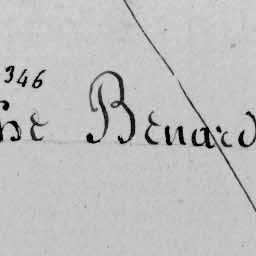 346
he Benard